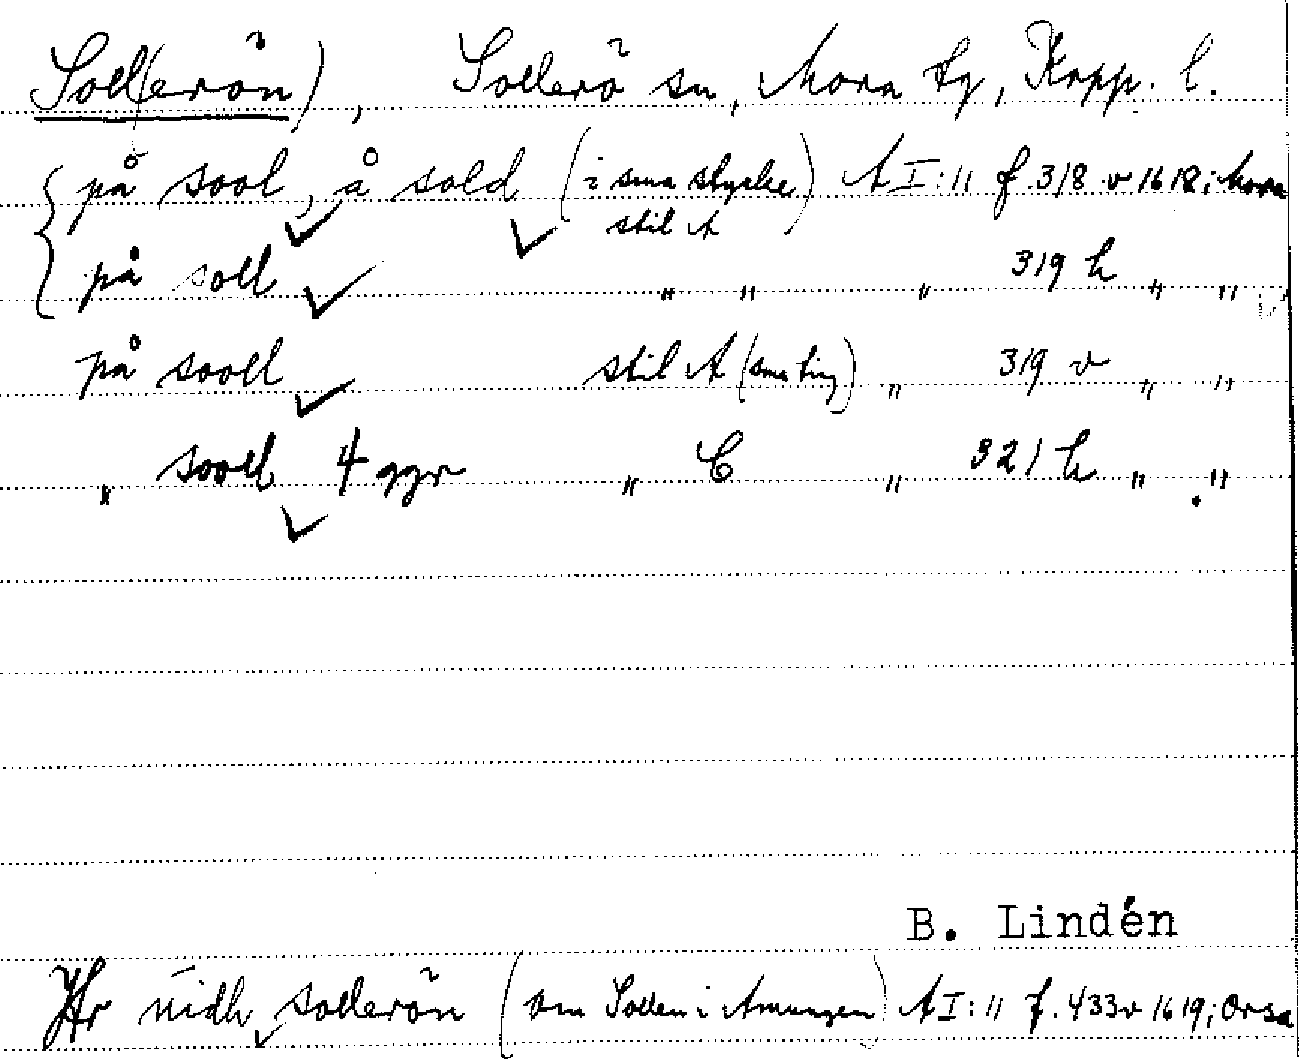 Soll(erön), Sollerö sn, Mora tg, Kopp. l.
på sool, å sold (i sma stycke) A I:11 f 318 v 1618; Mora
stil A
på soll " " " 319 h " "
på sooll stil A (sma ting) " 319 v " "
" sooll 4 ggr " C " 321 h " "
B. Lindén
Jfr nidh sollerön (om Sollen i Amungen) A I:11 f. 433v 1619; Orsa